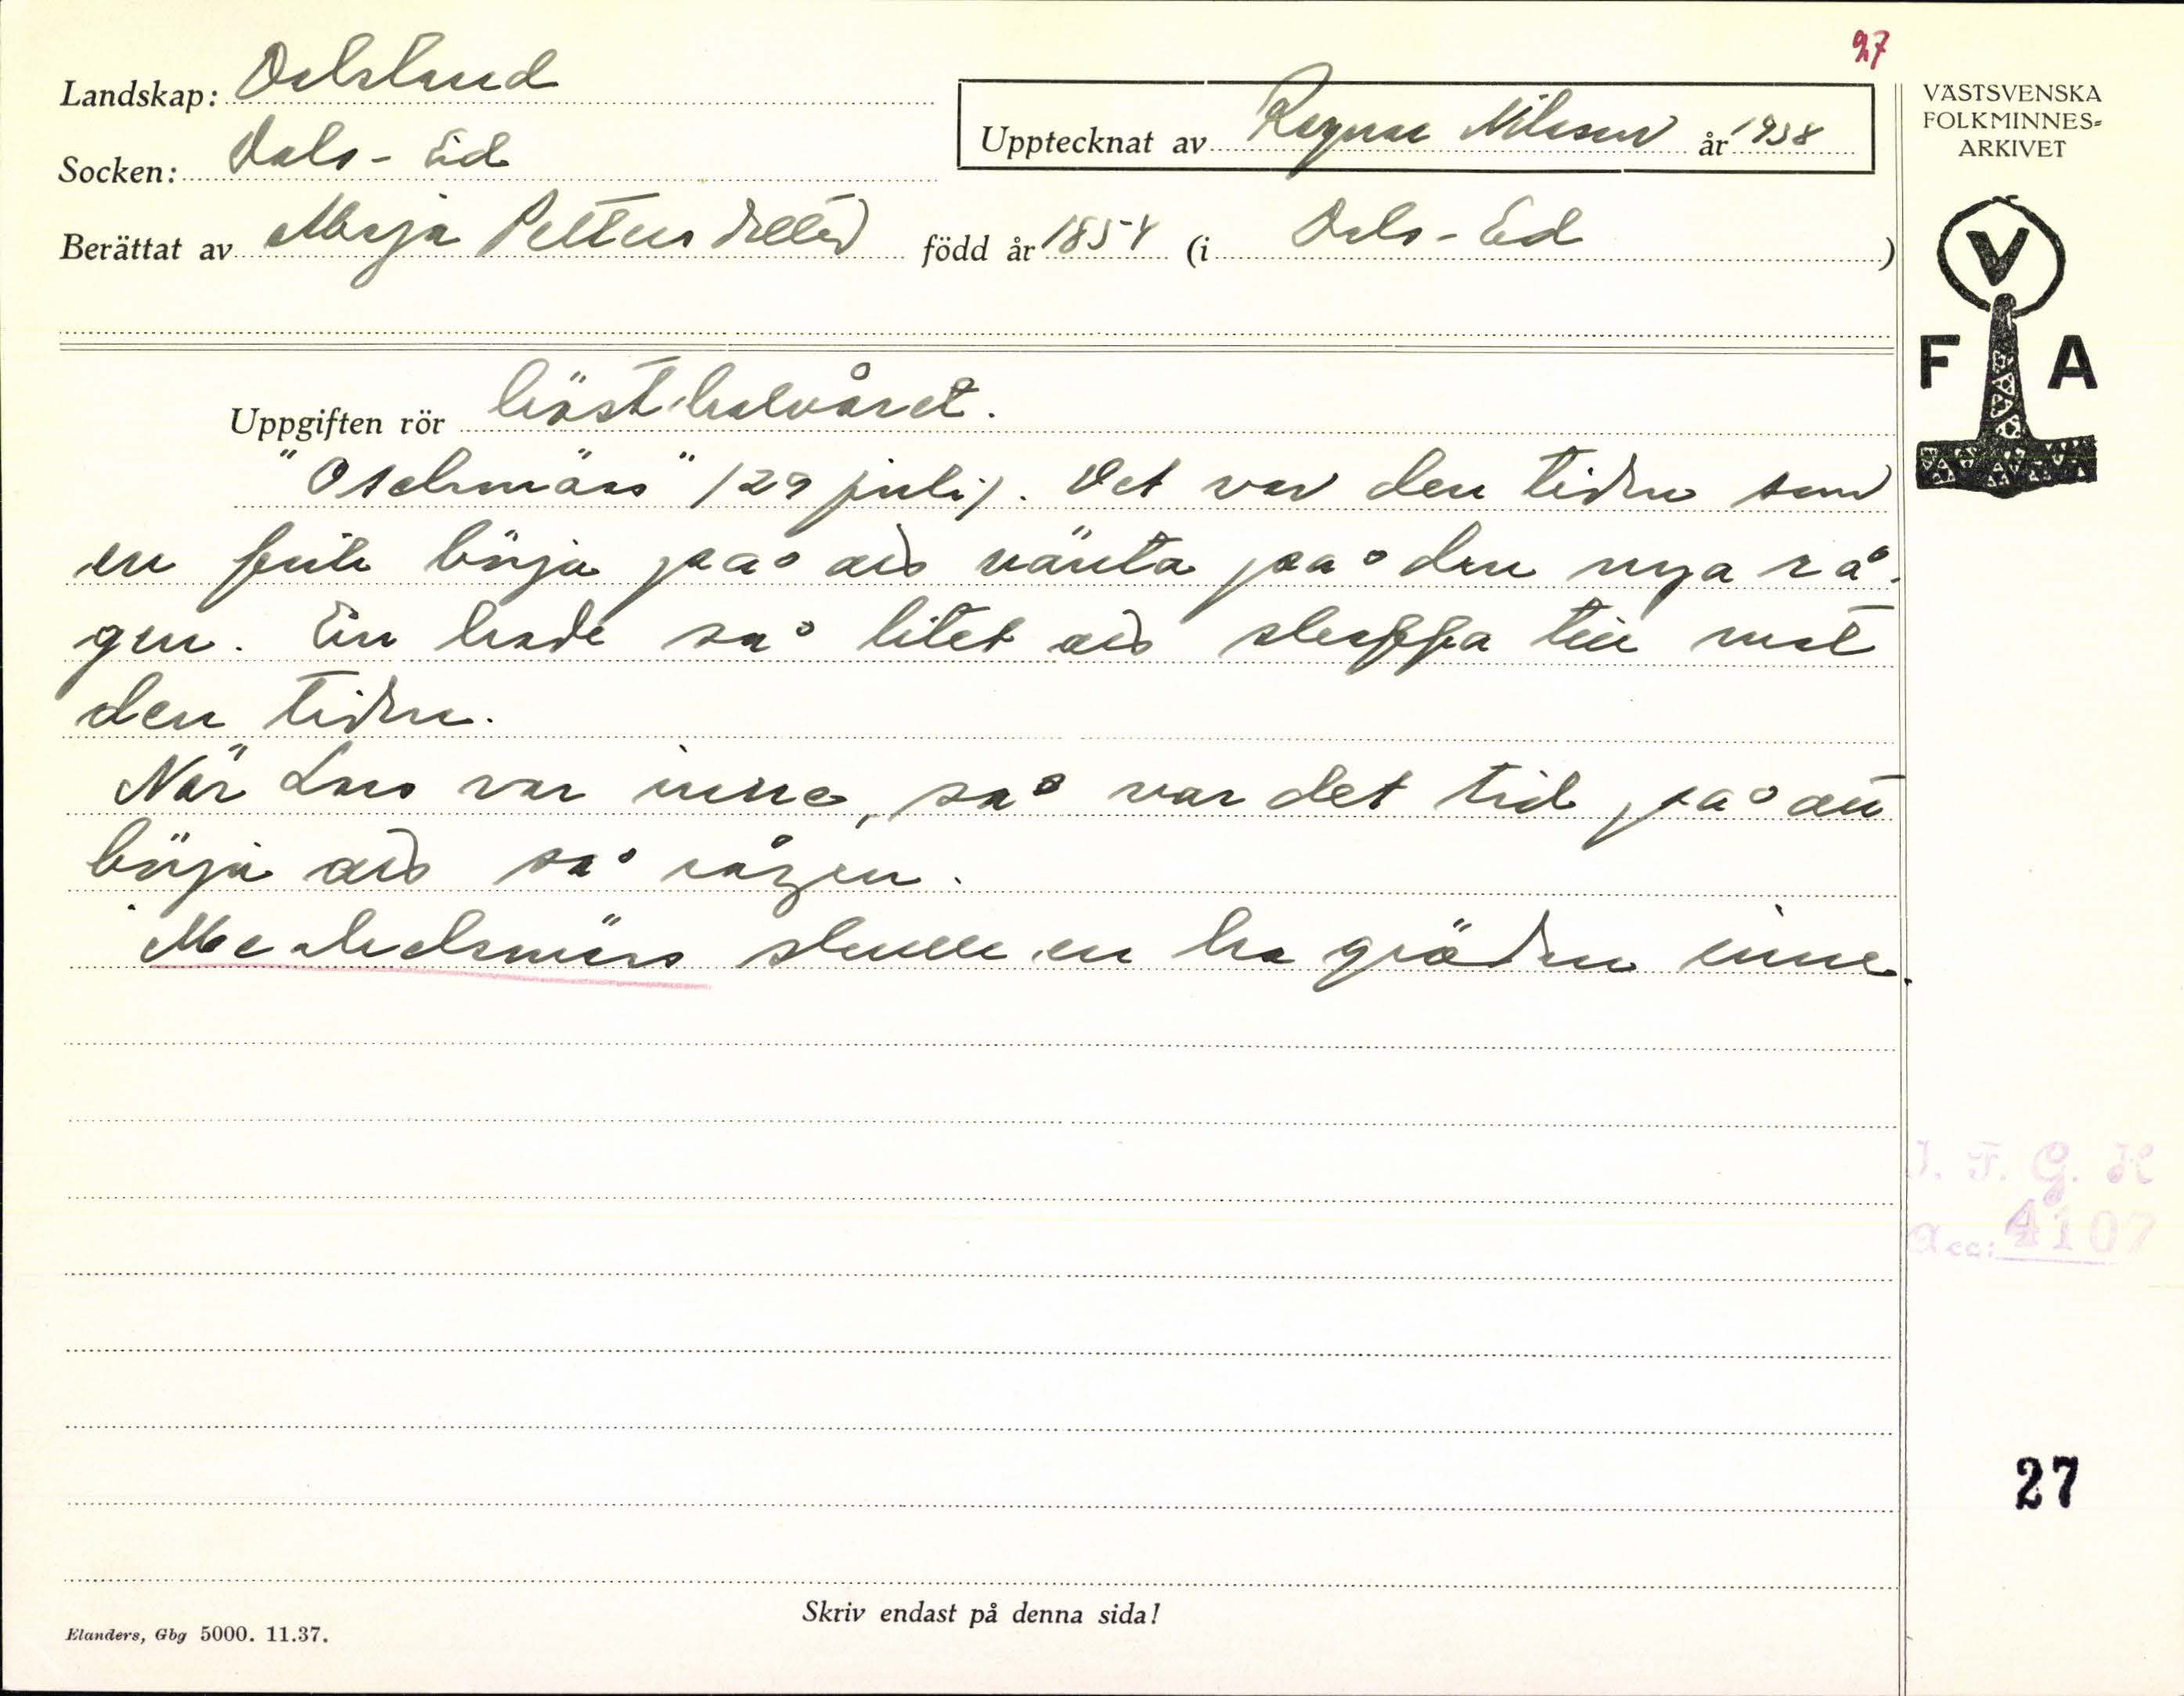 27
Landskap: Dalsland
Socken: Dals-Ed
Upptecknat av Ragnar Nilsson år 1938
Berättat av Maja Petters född år 1854 (i Dals-Ed)
VÄSTSVENSKA
FOLKMINNES=
ARKIVET
V
F A
Uppgiften rör hösthalvåret.
"Oselsmäss" (29 juli). Det var den tiden som
en fick börja på å vänta på den nya rå-
gen. En hade så litet å släppa till mot
den tiden.
När Lars var inne, så var det tid på att
börja å så rågen.
Mickelsmäss skulle en ha gröden inne.
I. F. G. H
Acc: 4107
27
Skriv endast på denna sida!
Elanders, Gbg 5000. 11.37.